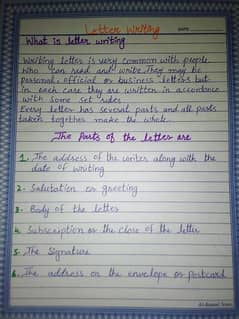 Letter Writing
DATE
What is letter writing
Writing letter is very common with people
who can read and write. They may be
personal, official or business letters but
in each case they are written in accordance
with some set rules
Every letter has several parts and all parts
taken together make the whole.
The Parts of the letter are
1. The address of the writer along with the
date of writing
2- Salutation or greeting
3- Body of the letter
4- Subscription or the close of the letter
5- The Signature
6- The address on the envelope or postcard